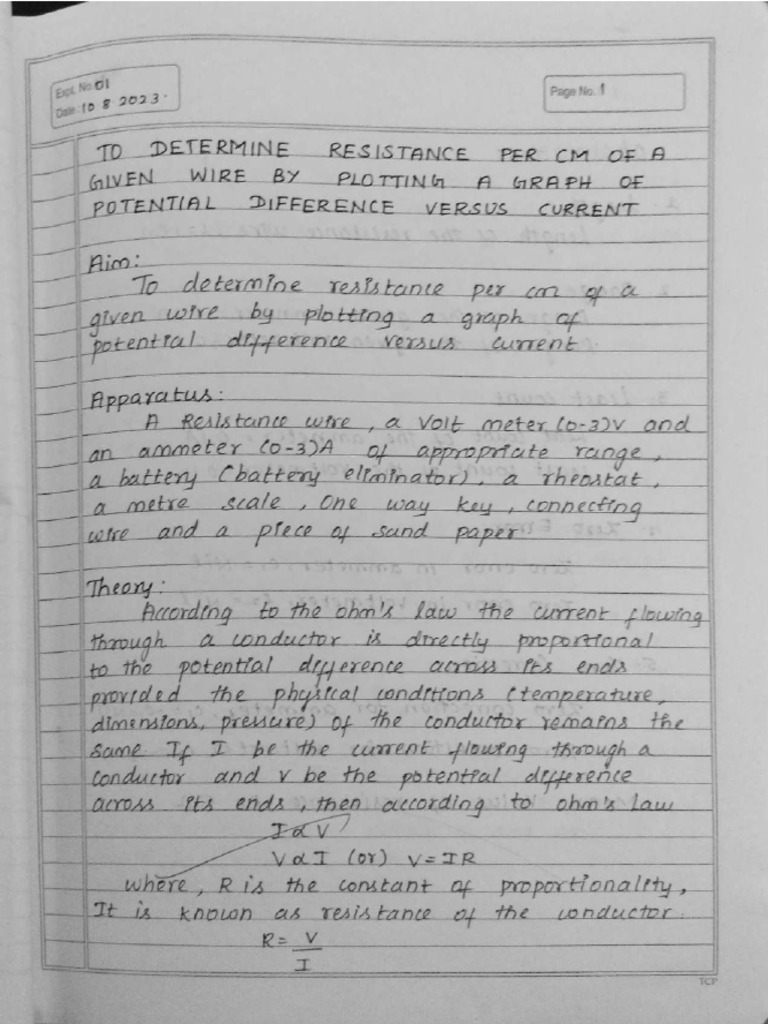 Expt. No. 01
Date: 10 8 2023.
Page No. 1
TO DETERMINE RESISTANCE PER CM OF A
GIVEN WIRE BY PLOTTING A GRAPH OF
POTENTIAL DIFFERENCE VERSUS CURRENT
Aim:
To determine resistance per cm of a
given wire by plotting a graph of
potential difference versus current.
Apparatus:
A Resistance wire, a Volt meter (0-3)V and
an ammeter (0-3)A of appropriate range,
a battery (battery eliminator), a rheostat,
a metre scale, One way key, connecting
wire and a piece of sand paper
Theory:
According to the ohm's law the current flowing
through a conductor is directly proportional
to the potential difference across its ends
provided the physical conditions (temperature,
dimensions, pressure) of the conductor remains the
same. If I be the current flowing through a
conductor and V be the potential difference
across its ends, then according to ohm's law
I ∝ V
V ∝ I (or) V = IR
where, R is the constant of proportionality,
It is known as resistance of the conductor.
R = V/I
TCP